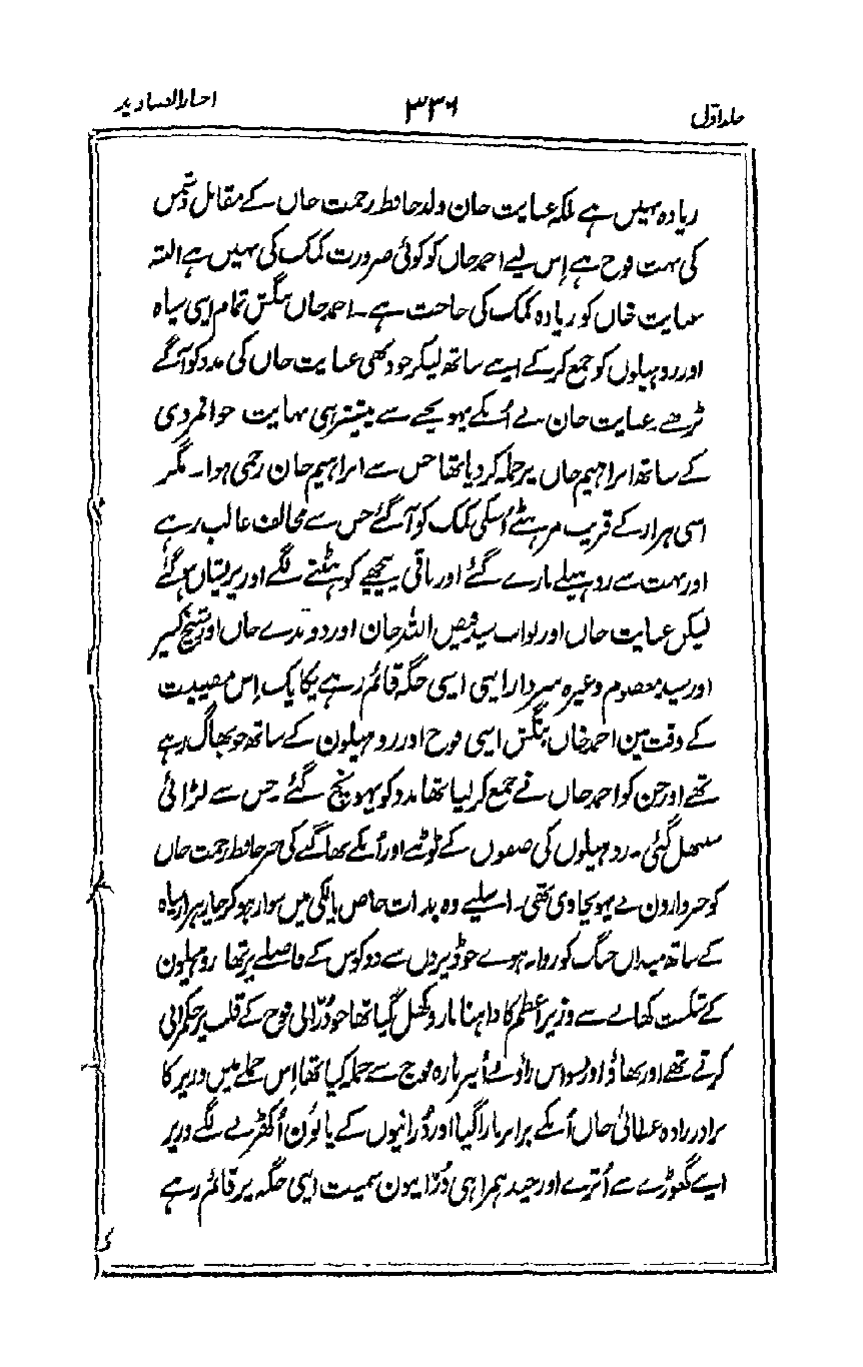 جلد اول ۳۳۶ اخبار الصنادید
زیادہ نہیں ہے بلکہ عنایت خان ولد حافظ رحمت خاں کے مقابل دشمن
کی بہت فوج ہے اِس لیے احمد خاں کو کوئی ضرورت کمک کی نہیں ہے البتہ
عنایت خاں کو زیادہ کمک کی حاجت ہے۔ احمد خاں بنگش تمام اپنی سپاہ
اور روہیلوں کو جمع کرکے اپنے ساتھ لیکر خود بھی عنایت خاں کی مدد کو آگے
بڑھے۔ عنایت خان نے اُنکے پہونچنے سے پیشتر ہی نہایت جوانمردی
کے ساتھ ابراہیم خاں پر حملہ کردیا تھا جس سے ابراہیم خان زخمی ہوا۔ مگر
اسی ہزار کے قریب مرہٹے اُسکی کمک کو آگئے جس سے مخالف غالب رہے
اور بہت سے روہیلے مارے گئے اور باقی پیچھے کو ہٹنے لگے اور پریشاں ہوگئے
لیکن عنایت خاں اور نواب سید فیض اللہ خان اور دوندے خاں اور شیخ کبیر
اور سید معصوم وغیرہ سردار اپنی اپنی جگہ قائم رہے یکایک اِس مصیبت
کے وقت مین احمد خاں بنگش اپنی فوج اور روہیلون کے ساتھ جو بھاگ رہے
تھے اور جن کو احمد خاں نے جمع کر لیا تھا مدد کو پہونچ گئے جس سے لڑائی
سنبھل گئی۔ روہیلوں کی صفوں کے ٹوٹنے اور اُنکے بھاگنے کی خبر حافظ رحمت خاں
کو خبردارون نے پہونچا دی تھی۔ اسلیے وہ بذات خاص پالکی میں سوار ہوکر چار ہزار سپاہ
کے ساتھ میدان جنگ کو روانہ ہوے جو ڈیروں سے دو کوس کے فاصلے پر تھا روہیلون
کے شکست کھانے سے وزیر اعظم کا داہنا بازو کھل گیا تھا جو دُرّانی فوج کے قلب پر حکمرانی
کرتے تھے اور بھاؤ اور بسواس راؤ نے اُنپر تازہ فوج سے حملہ کیا تھا اِس حملے میں وزیر کا
برادرزادہ عطائی خاں اُنکے برابر مارا گیا اور دُرانیوں کے پانون اُکھڑنے لگے وزیر
اپنے گھوڑے سے اُترے اور چند ہمراہی دُرّانیون سمیت اپنی جگہ پر قائم رہے